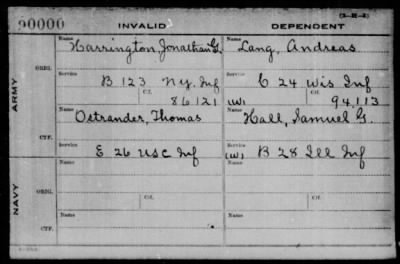 (3-H-3)
90000
INVALID
DEPENDENT
ARMY
ORIG.
Name
Harrington, Jonathan G.
Name
Lang, Andreas
Service
B 123 Ny. Inf
Service
C 24 Wis Inf
Ctf.
86121
(W)
Ctf.
94,113
CTF.
Name
Ostrander, Thomas
Name
Hall, Samuel G.
Service
E 26 USC Inf
Service
(W) B 28 Ill Inf
NAVY
ORIG.
Name
Name
Ctf.
Ctf.
CTF.
Name
Name